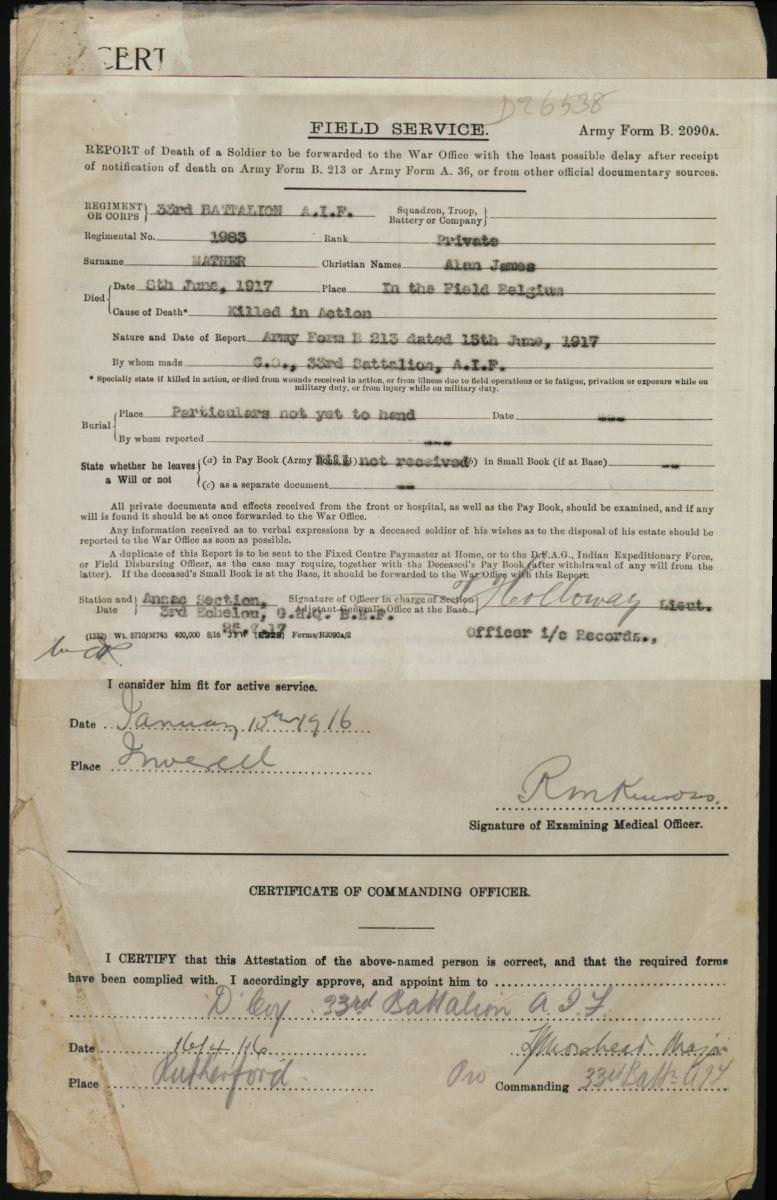 CERT
D26538
FIELD SERVICE. Army Form B. 2090A.
REPORT of Death of a Soldier to be forwarded to the War Office with the least possible delay after receipt
of notification of death on Army Form B. 213 or Army Form A. 36, or from other official documentary sources.
REGIMENT OR CORPS } 33rd BATTALION A.I.F. Squadron, Troop, Battery or Company }
Regimental No. 1983 Rank Private
Surname MATHER Christian Names Alan James
Died { Date 8th June, 1917 Place In the Field Belgium
Cause of Death* Killed in Action
Nature and Date of Report Army Form B 213 dated 15th June, 1917
By whom made C.O., 33rd Battalion, A.I.F.
* Specially state if killed in action, or died from wounds received in action, or from illness due to field operations or to fatigue, privation or exposure while on
military duty, or from injury while on military duty.
Burial { Place Particulars not yet to hand Date ---
By whom reported ---
State whether he leaves a Will or not { (a) in Pay Book (Army Will not received (b) in Small Book (if at Base) --
(c) as a separate document --
All private documents and effects received from the front or hospital, as well as the Pay Book, should be examined, and if any
will is found it should be at once forwarded to the War Office.
Any information received as to verbal expressions by a deceased soldier of his wishes as to the disposal of his estate should be
reported to the War Office as soon as possible.
A duplicate of this Report is to be sent to the Fixed Centre Paymaster at Home, or to the D.A.A.G., Indian Expeditionary Force,
or Field Disbursing Officer, as the case may require, together with the Deceased's Pay Book (after withdrawal of any will from the
latter). If the deceased's Small Book is at the Base, it should be forwarded to the War Office with this Report.
Station and Date } Anzac Section, Signature of Officer in charge of Section Holloway Lieut.
3rd Echelon, G.H.Q. B.E.F. Adjutant-General's Office at the Base
17 Officer i/c Records.,
400,000 8/16 Forms/B2090A/2
I consider him fit for active service.
Date January 15th 1916
Place Inverell
R M Kinross
Signature of Examining Medical Officer.
CERTIFICATE OF COMMANDING OFFICER.
I CERTIFY that this Attestation of the above-named person is correct, and that the required forms
have been complied with. I accordingly approve, and appoint him to
"D" Coy 33rd Battalion A I F.
Date 16/4/16 Morshead Major
Place Rutherford Commanding 33rd Battn AIF